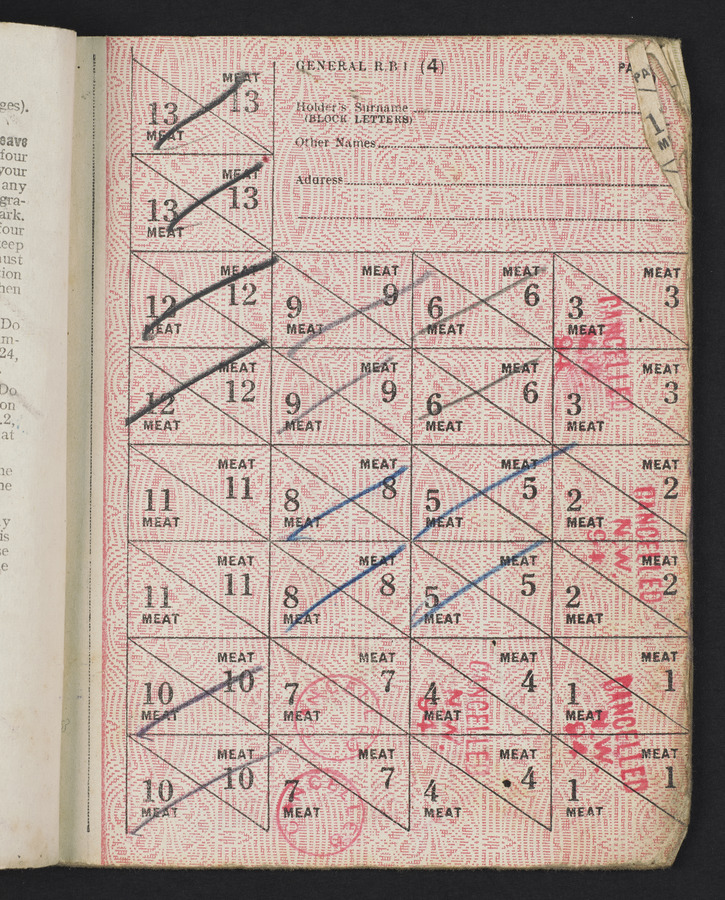 ges).
eave
four
your
any
gra-
ark.
four
keep
must
tion
hen
Do
24,
Do
on
at
GENERAL R.B1 (4)
PA
PA
1
M
Holder's Surname
(BLOCK LETTERS)
Other Names
Address
MEAT
13 13
MEAT
MEAT
13 13
MEAT
MEAT MEAT MEAT MEAT
12 12 9 9 6 6 3 3
MEAT MEAT MEAT MEAT
CANCELLED
MEAT MEAT MEAT MEAT
12 12 9 9 6 6 3 3
MEAT MEAT MEAT MEAT
MEAT MEAT MEAT MEAT
11 11 8 8 5 5 2 2
MEAT MEAT MEAT MEAT
CANCELLED
N.W.
MEAT MEAT MEAT MEAT
11 11 8 8 5 5 2 2
MEAT MEAT MEAT MEAT
MEAT MEAT MEAT MEAT
10 10 7 7 4 4 1 1
MEAT MEAT MEAT MEAT
CANCELLED
CANCELLED
N.W.
CANCELLED
N.W.
MEAT MEAT MEAT MEAT
10 10 7 7 4 4 1 1
MEAT MEAT MEAT MEAT
CANCELLED